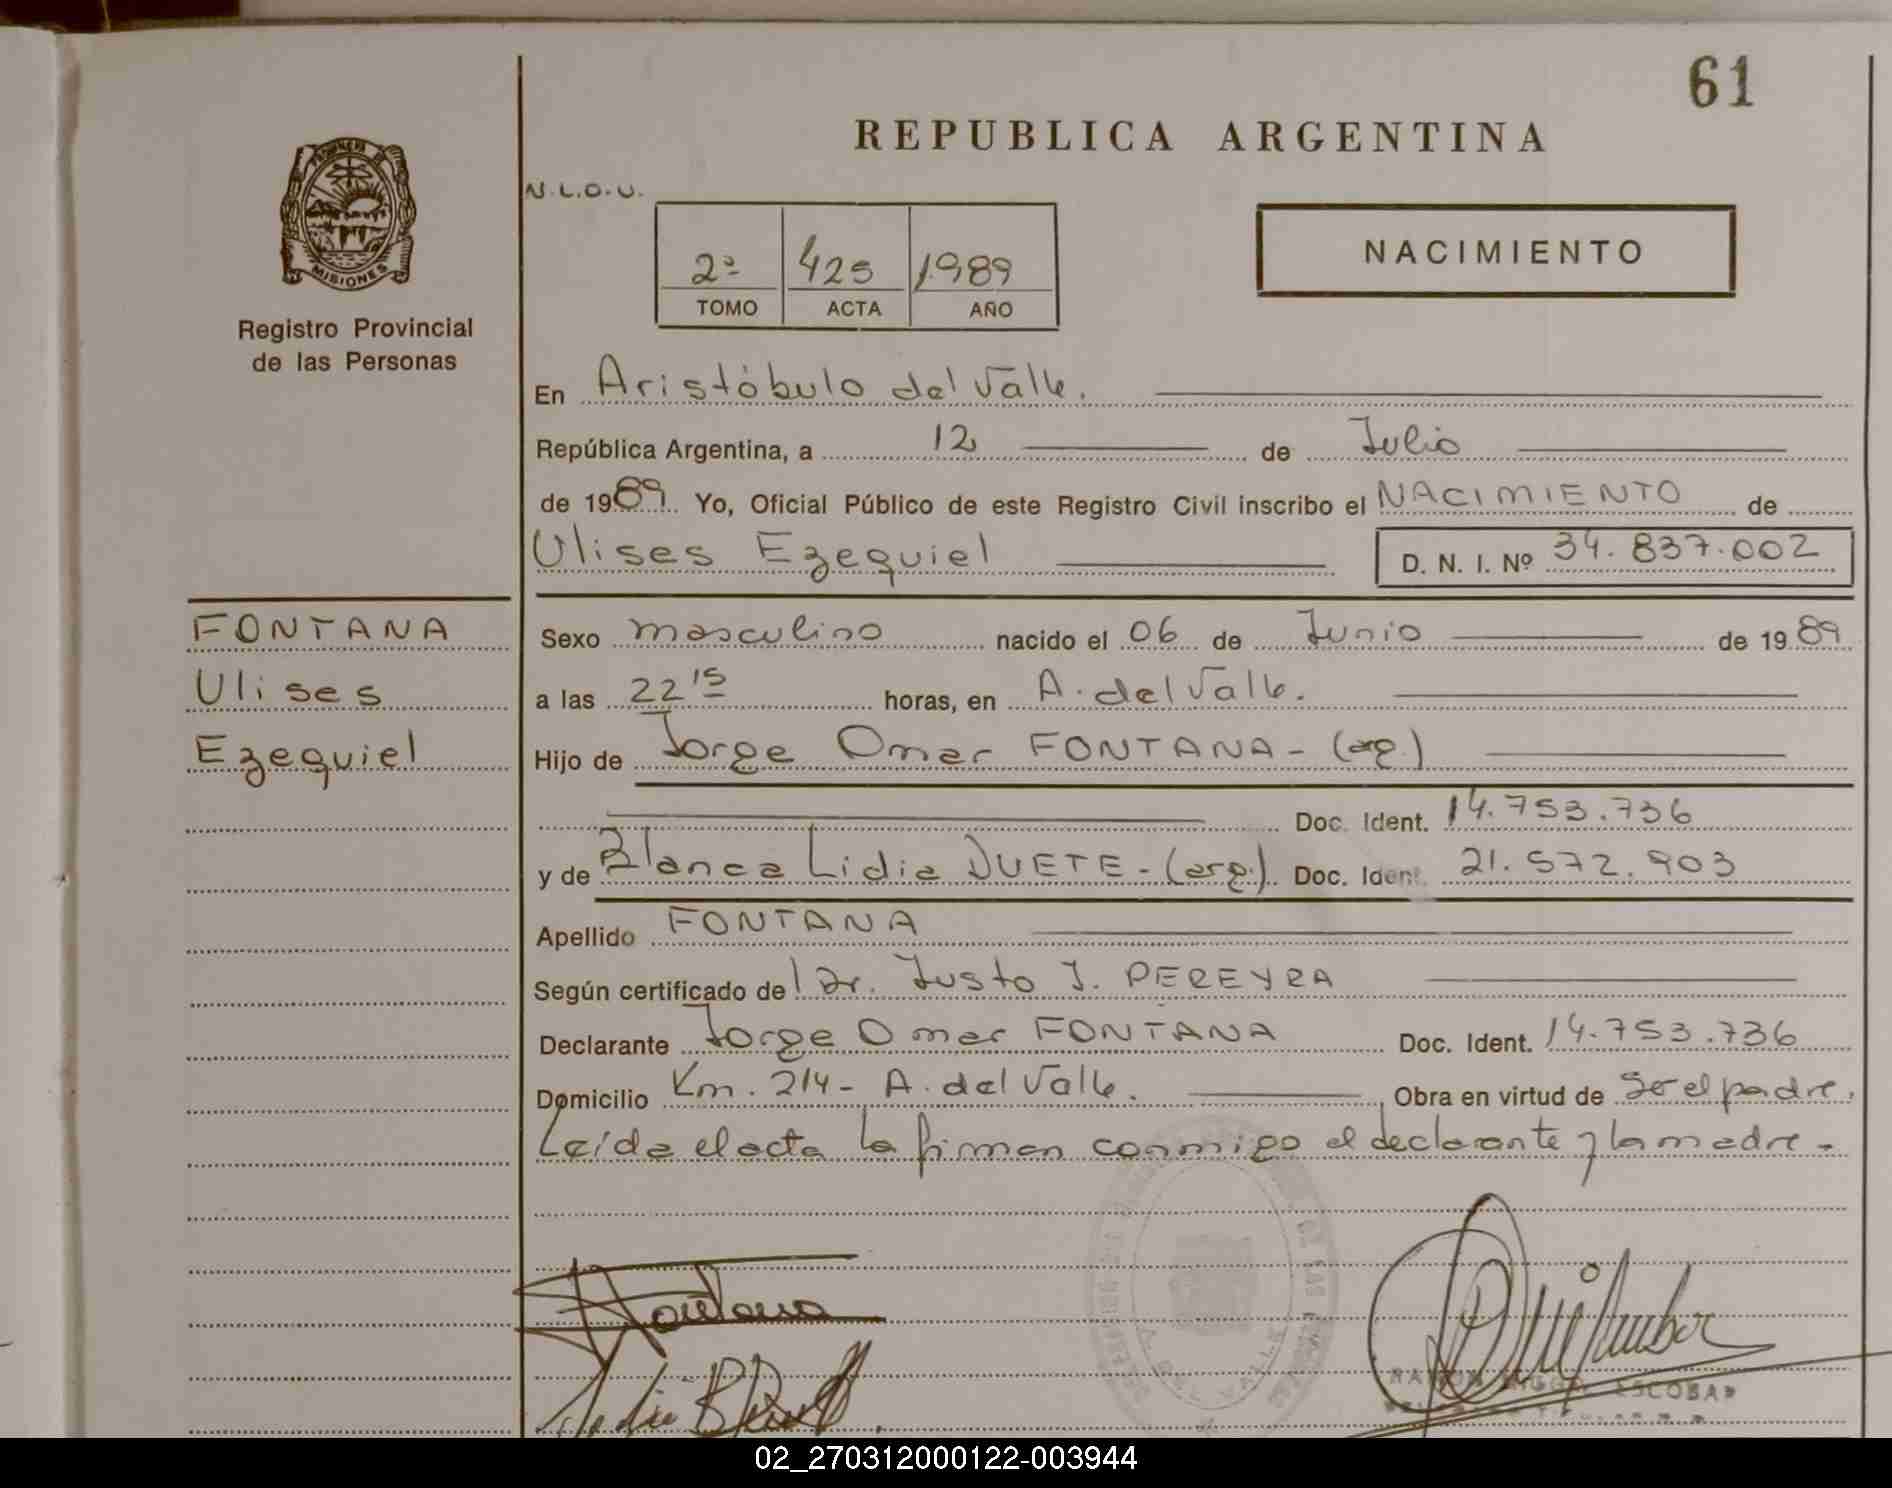 61
REPUBLICA ARGENTINA
N.L.O.U.
PROVINCIA DE
MISIONES
NACIMIENTO
2º 425 1989
TOMO ACTA AÑO
Registro Provincial
de las Personas
En Aristóbulo del Valle.
República Argentina, a 12 de Julio
de 1989 Yo, Oficial Público de este Registro Civil inscribo el NACIMIENTO de
Ulises Ezequiel D. N. I. Nº 34.837.002
FONTANA
Ulises
Ezequiel
Sexo masculino nacido el 06 de Junio de 1989
a las 22 15 horas, en A. del Valle.
Hijo de Jorge Omar FONTANA - (arg.)
Doc. Ident. 14.753.736
y de Blanca Lidia DUETE - (arg.) Doc. Ident. 21.572.903
Apellido FONTANA
Según certificado del Dr. Justo J. PEREYRA
Declarante Jorge Omar FONTANA Doc. Ident. 14.753.736
Domicilio Km. 214 - A. del Valle. Obra en virtud de ser el padre.
Leída el acta la firman conmigo el declarante y la madre.-
Fontana
A. DEL VALLE
RAMON ESCOBAR
02_270312000122-003944